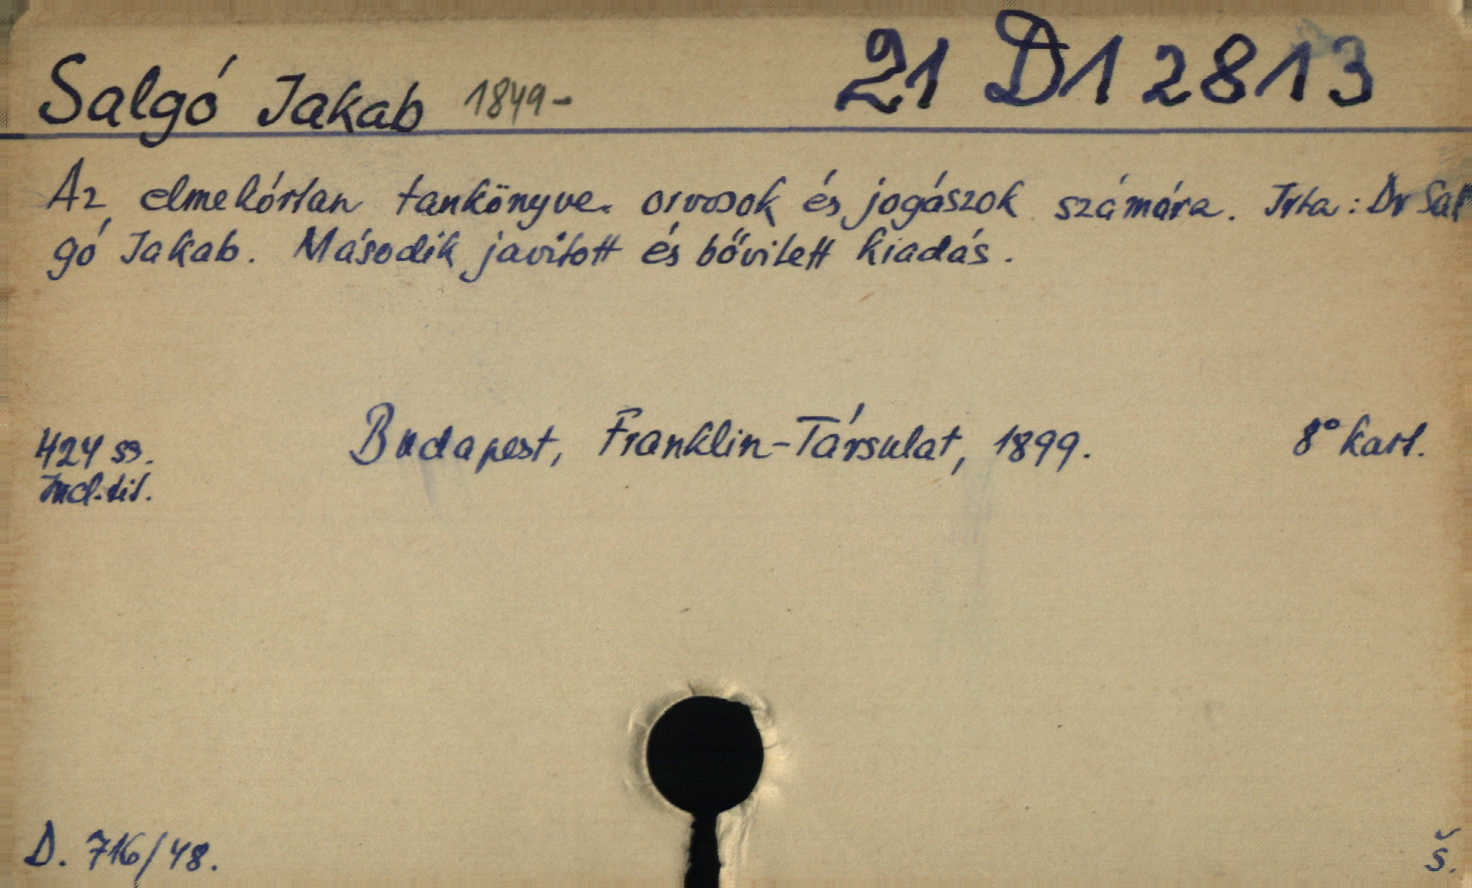 Salgó Jakab 1849- 21 D 12813
Az elmekórtan tankönyve. orvosok és jogászok számára. Irta: Dr Sal
gó Jakab. Második javitott és bővitett kiadás.
424 ss. Budapest, Franklin-Társulat, 1899. 8° kart.
Incl. tit.
D. 716/48. š.